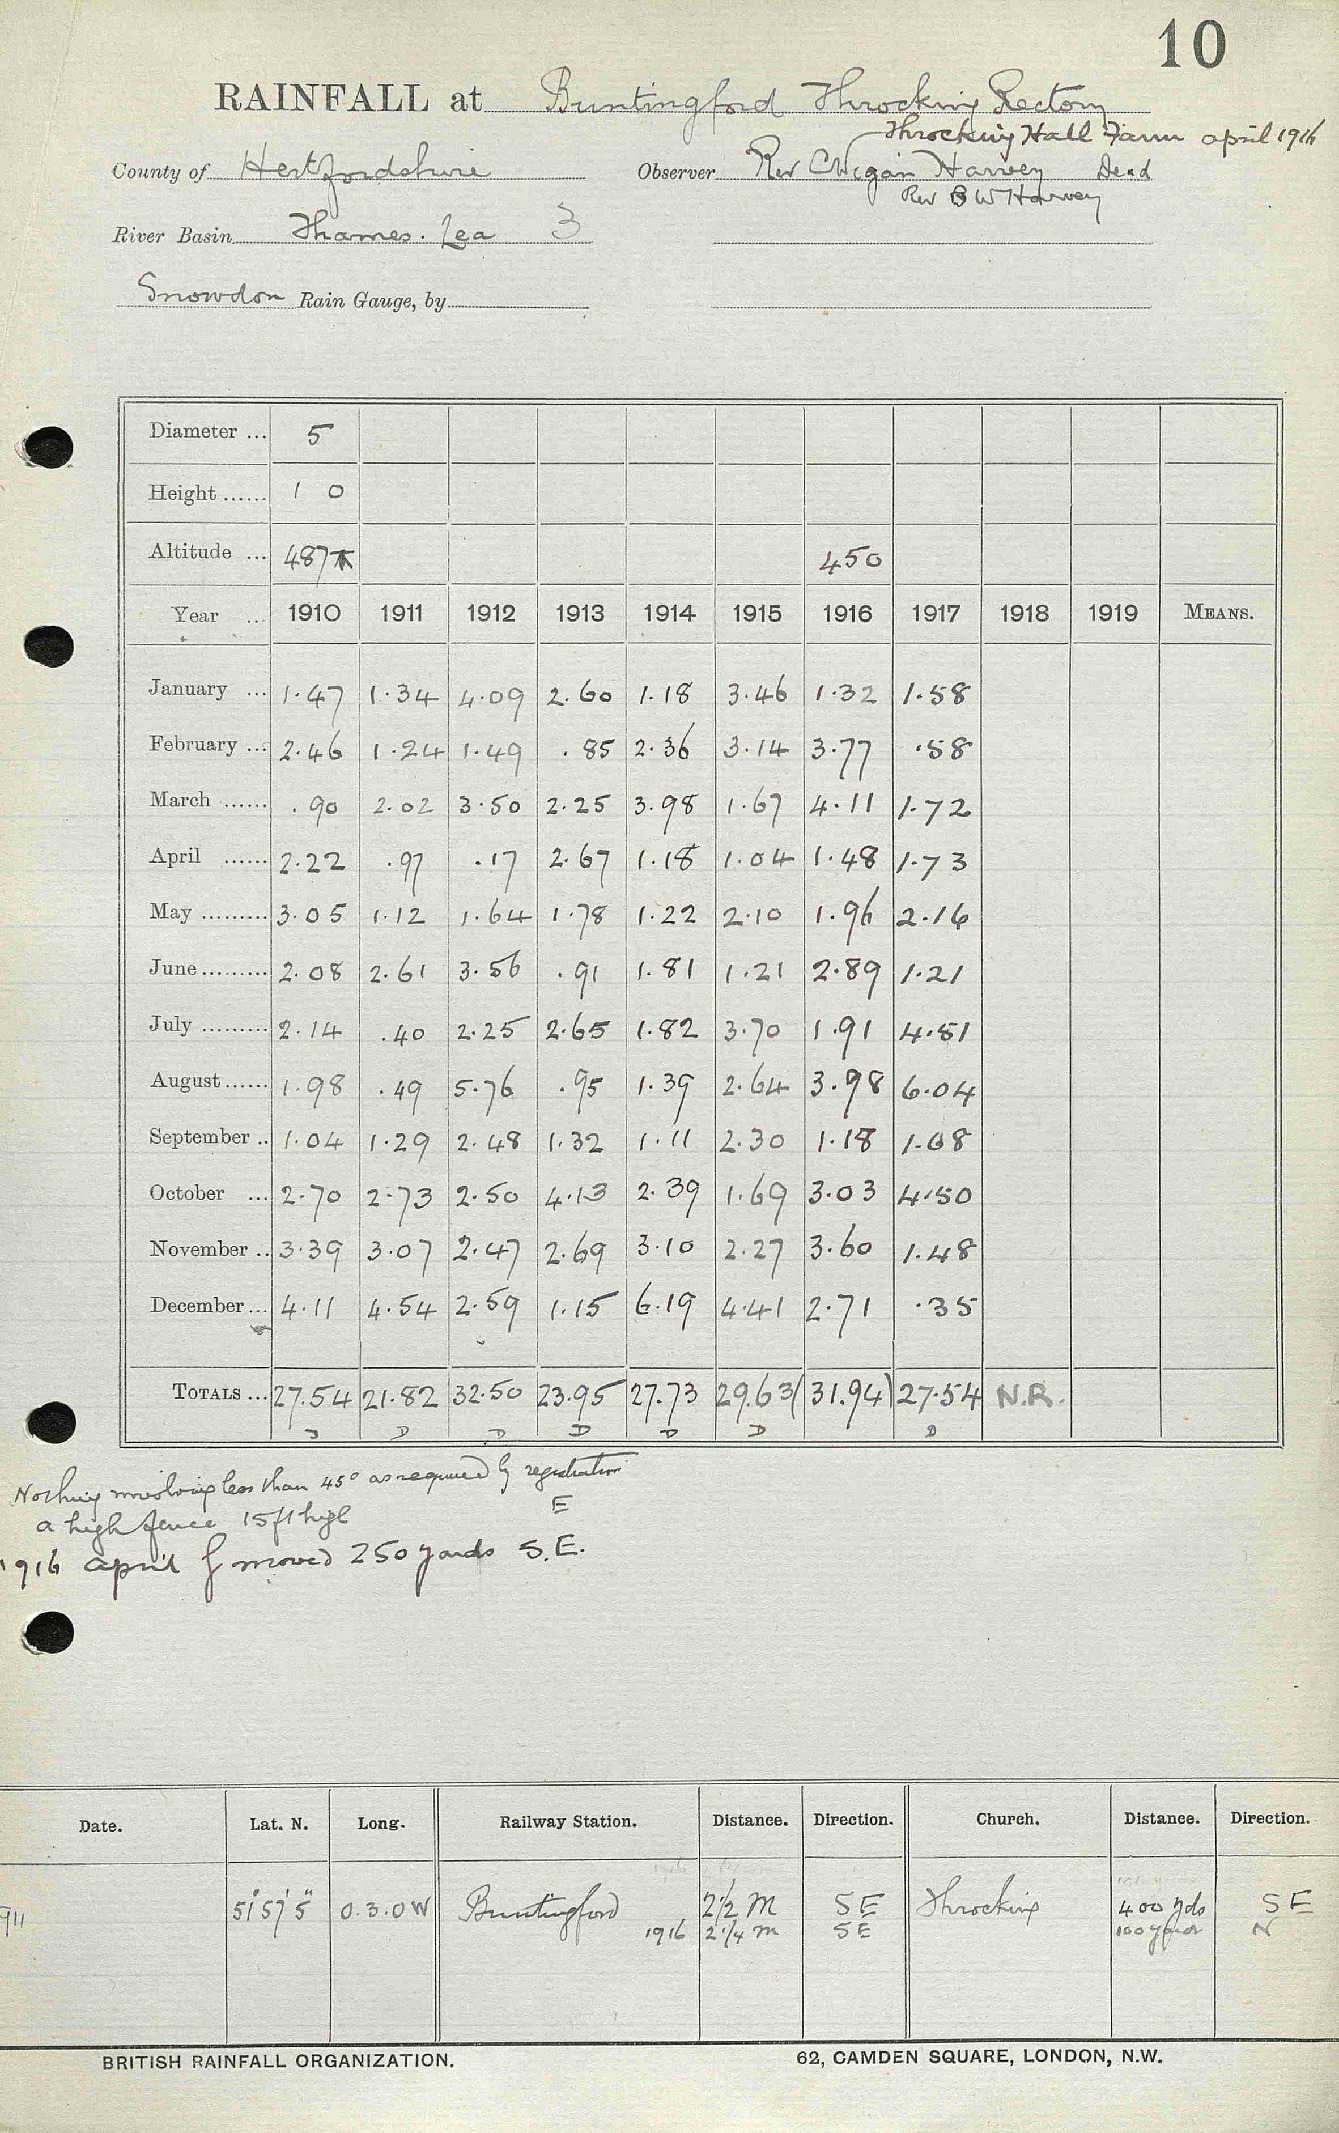 10
RAINFALL at Buntingford Throcking Rectory
Throcking Hall Farm april 1916
County of Hertfordshire Observer Rev C Wigan Harvey Dead
Rev B W Harvey
River Basin Thames. Lea 3
Snowdon Rain Gauge, by
Diameter ... 5
Height ...... 1 0
Altitude ... 487 450
Year ... 1910 1911 1912 1913 1914 1915 1916 1917 1918 1919 MEANS.
January ... 1.47 1.34 4.09 2.60 1.18 3.46 1.32 1.58
February ... 2.46 1.24 1.49 .85 2.36 3.14 3.77 .58
March ...... .90 2.02 3.50 2.25 3.98 1.67 4.11 1.72
April ...... 2.22 .97 .17 2.67 1.18 1.04 1.48 1.73
May ......... 3.05 1.12 1.64 1.78 1.22 2.10 1.96 2.16
June ......... 2.08 2.61 3.56 .91 1.81 1.21 2.89 1.21
July ......... 2.14 .40 2.25 2.65 1.82 3.70 1.91 4.51
August ...... 1.98 .49 5.76 .95 1.39 2.64 3.98 6.04
September .. 1.04 1.29 2.48 1.32 1.11 2.30 1.18 1.68
October ... 2.70 2.73 2.50 4.13 2.39 1.69 3.03 4.50
November .. 3.39 3.07 2.47 2.69 3.10 2.27 3.60 1.48
December ... 4.11 4.54 2.59 1.15 6.19 4.41 2.71 .35
TOTALS ... 27.54 21.82 32.50 23.95 27.73 29.63 (31.94) 27.54 N.R.
D D D D D D D
Nothing involving less than 45° as required by registration
a high fence 15ft high E
1916 april moved 250 yards S.E.
Date. Lat. N. Long. Railway Station. Distance. Direction. Church. Distance. Direction.
51°57'5" 0.3.0W Buntingford 2½ m SE Throcking 400 yds SE
1916 2¼ m SE 100 yards N
BRITISH RAINFALL ORGANIZATION. 62, CAMDEN SQUARE, LONDON, N.W.